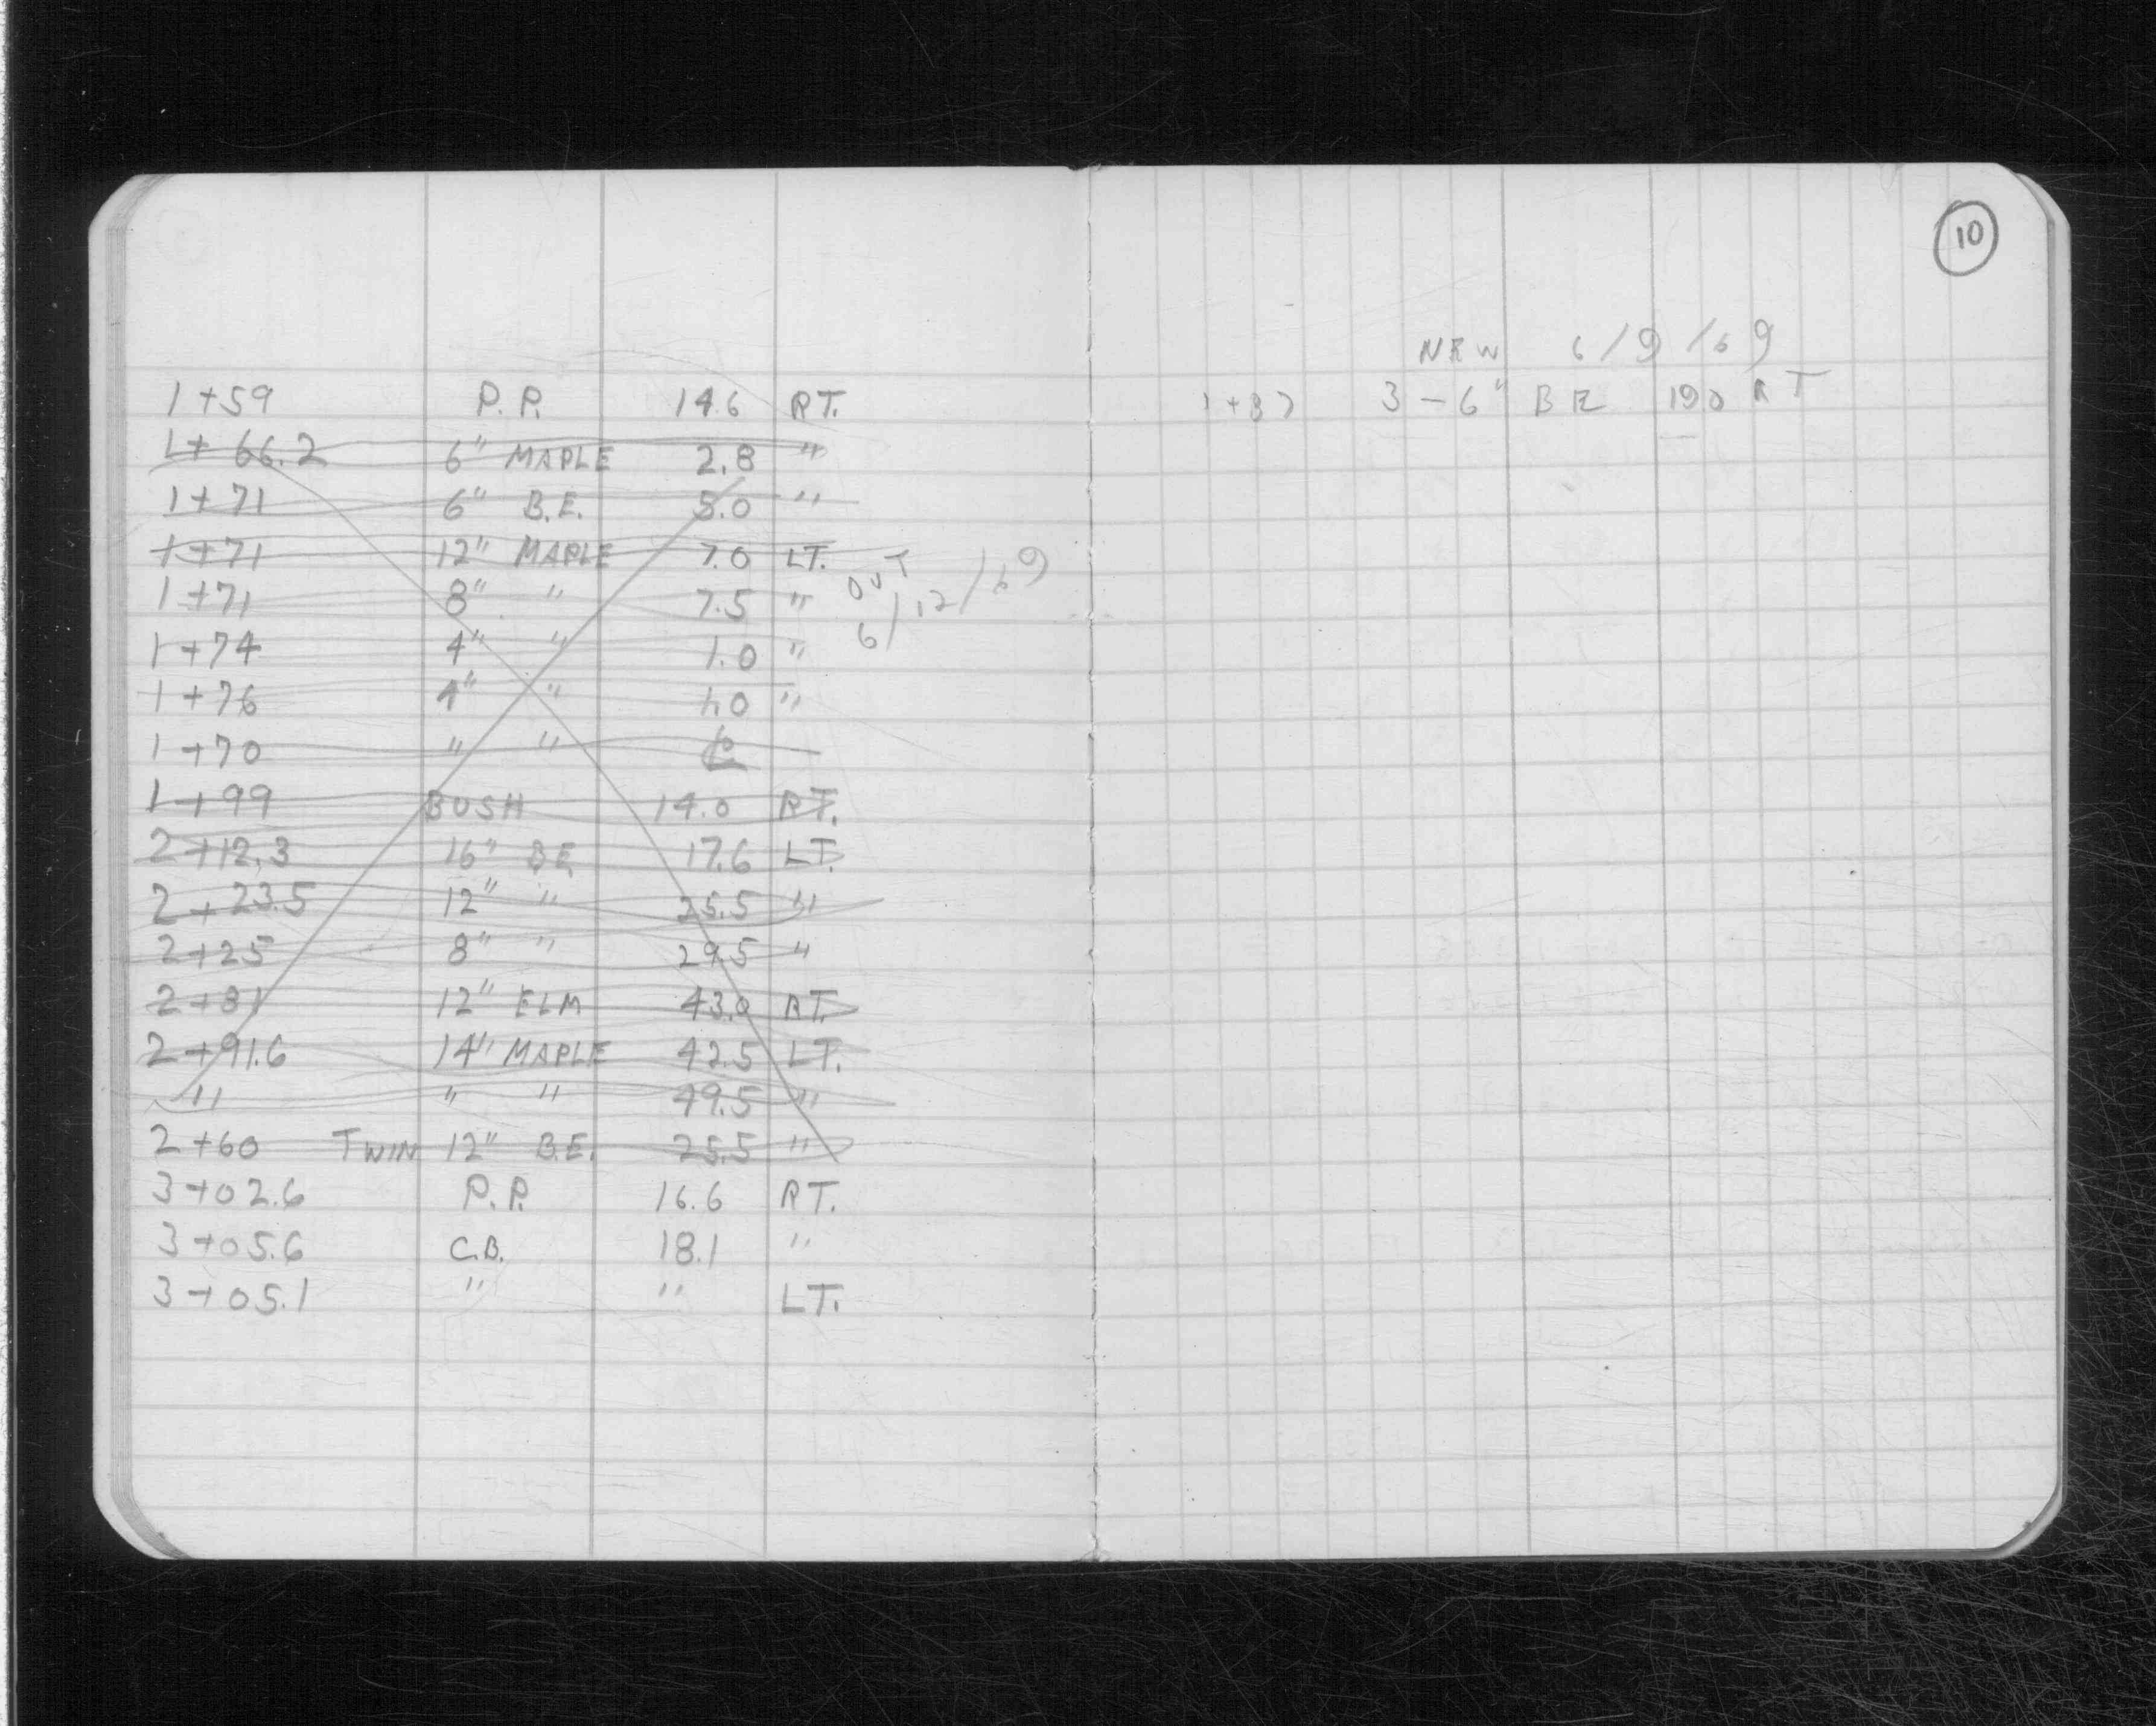 1+59 P.P. 14.6 RT.
1+66.2 6" MAPLE 2.8 "
1+71 6" B.E. 5.0 "
1+71 12" MAPLE 7.0 LT.
1+71 8" " 7.5 " OUT
6/12/69
1+74 4" " 1.0 "
1+76 4" " 1.0 "
1+70 " " ℄
1+99 BUSH 14.0 RT.
2+12.3 16" BE 17.6 LT.
2+23.5 12" " 25.5 "
2+25 8" " 29.5 "
2+81 12" ELM 43.0 RT.
2+91.6 14" MAPLE 42.5 LT.
" " " 49.5 "
2+60 TWIN 12" B.E. 25.5 "
3+02.6 P.P. 16.6 RT.
3+05.6 C.B. 18.1 "
3+05.1 " " LT.
10
NEW 6/9/69
3-6" BE 190 RT